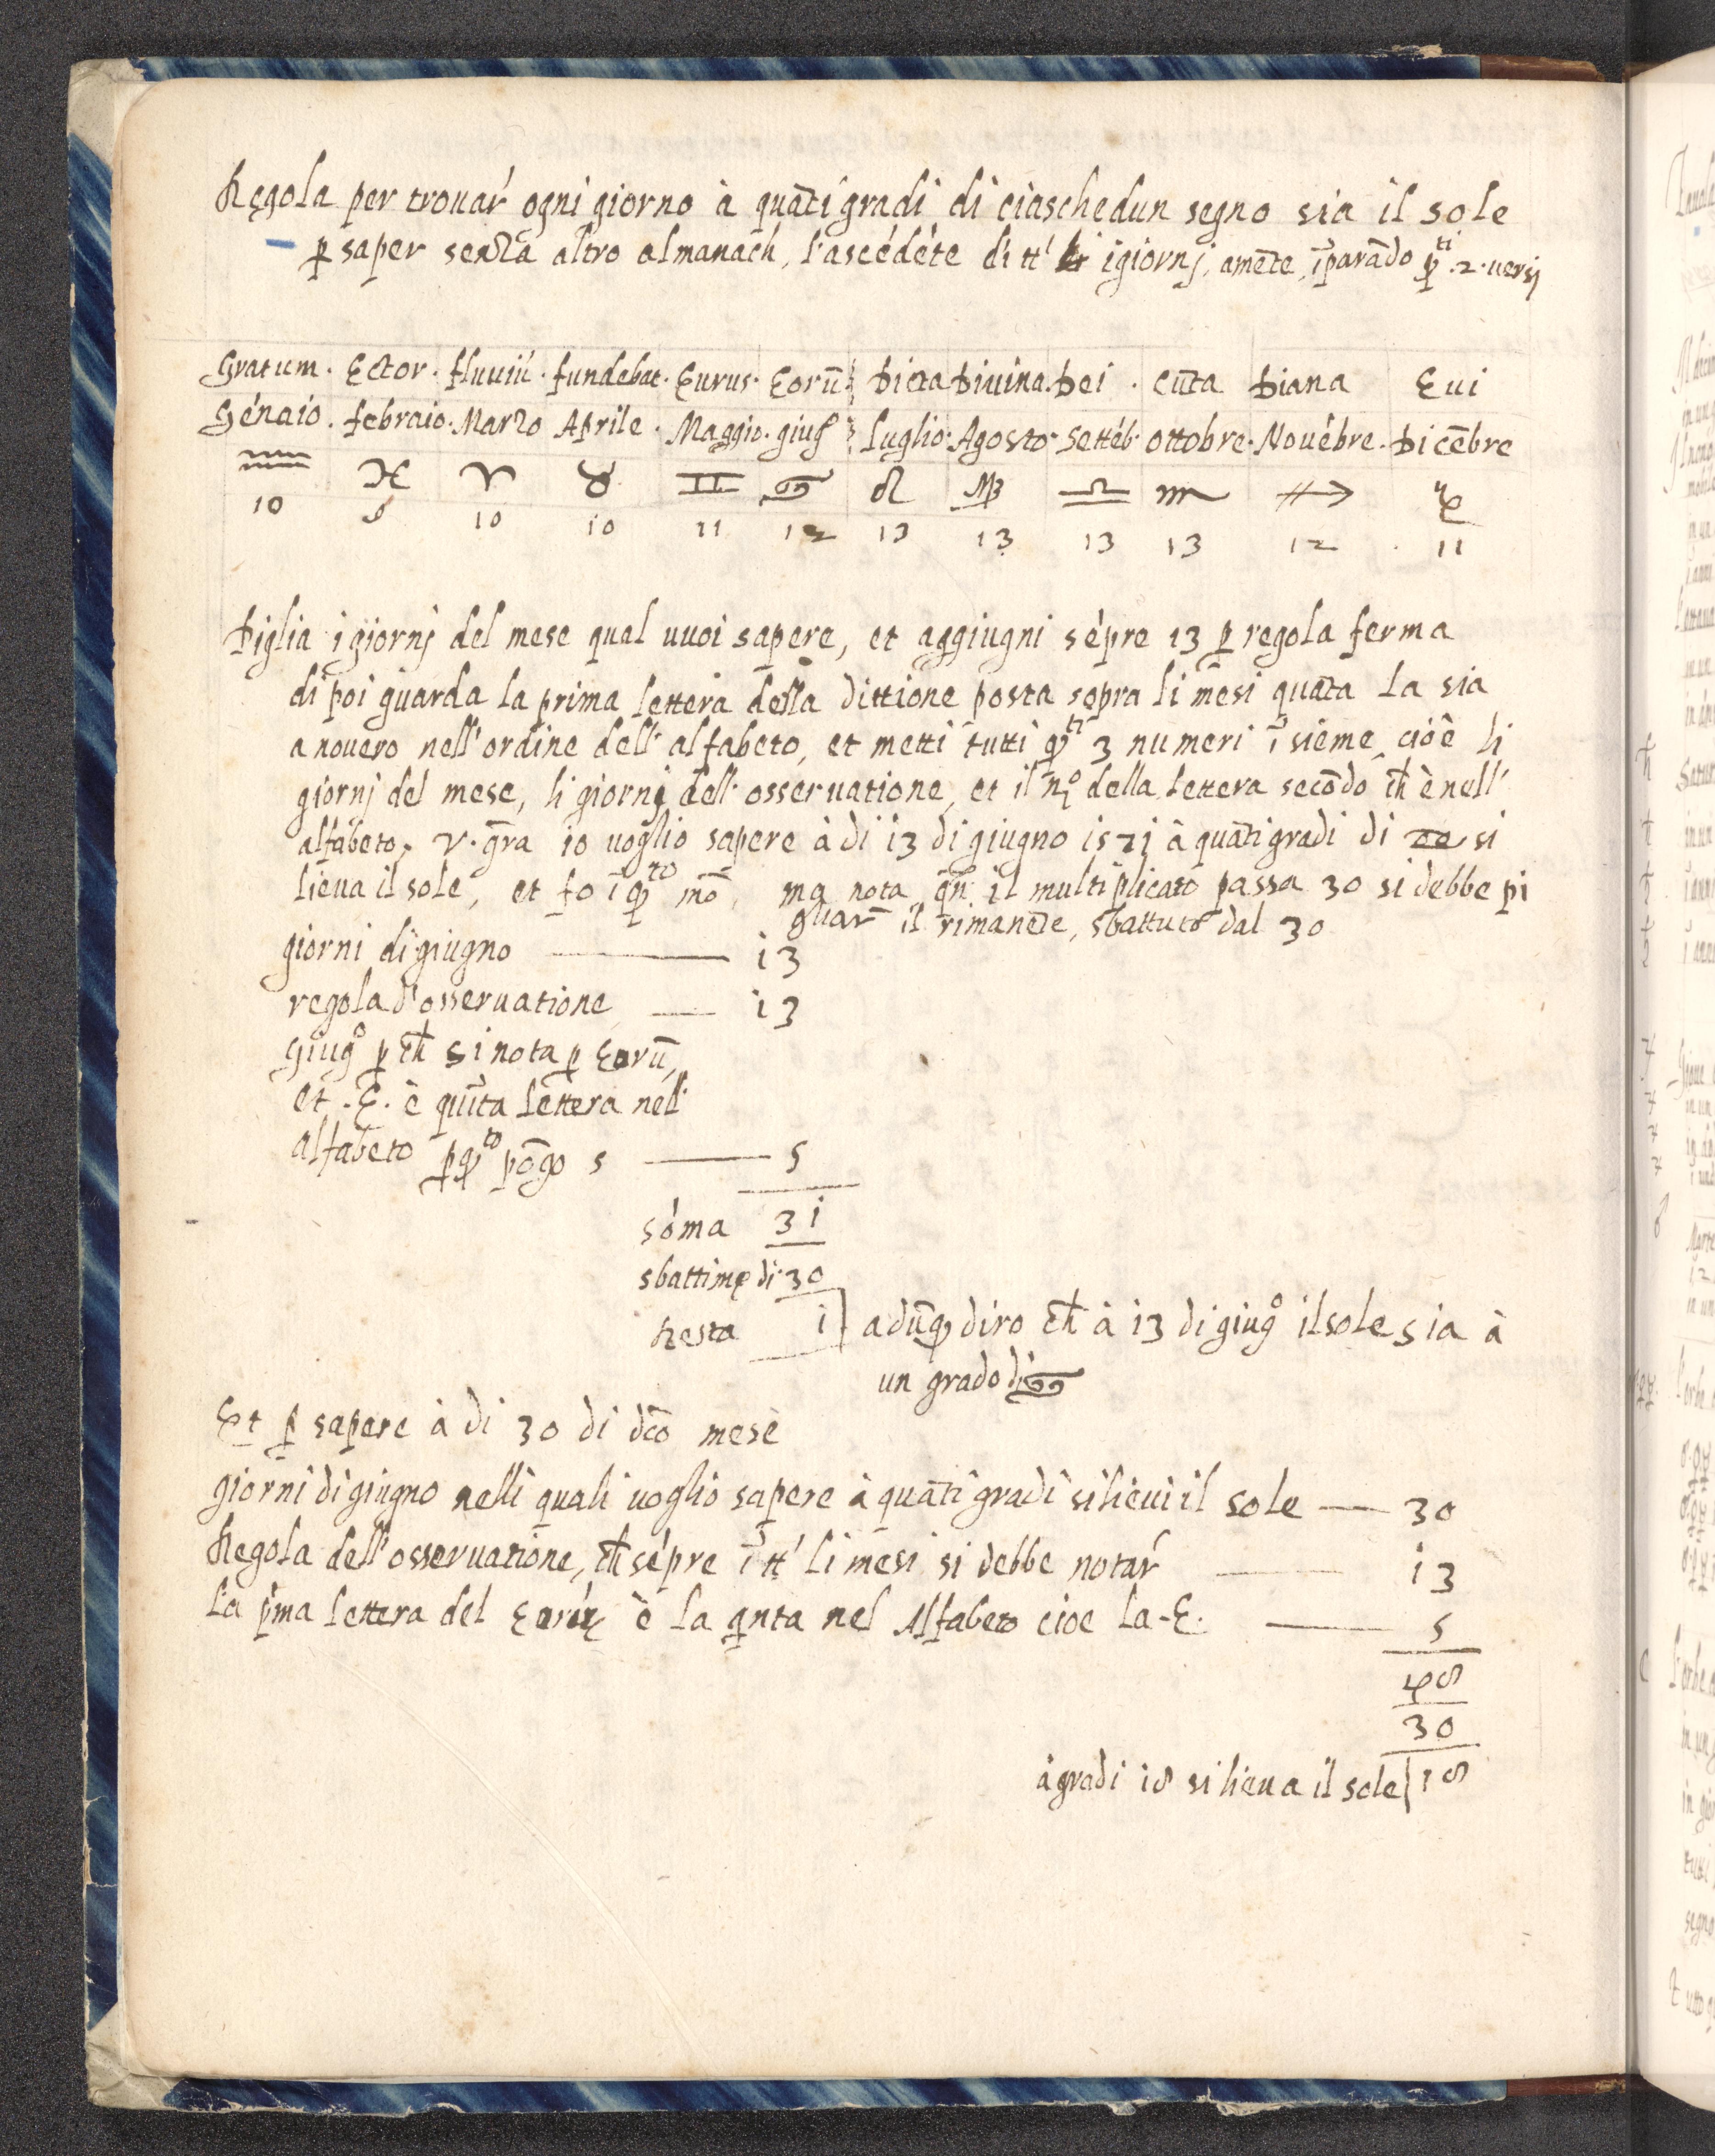 Regola per trouar' ogni giorno à quāti gradi di ciaschedun segno sia il sole
p saper senza altro almanach, l'ascēdēte di tt' i giornj, amēte, īparādo q̄ti .2. uersi
Gratum . Ector . fluuiū . fundebat . Eurus . Eorū . Dicta Diuina . Dei . cūta Diana Eui
Gēnaio . febraio . Marzo Aprile . Maggio . giug° Luglio . Agosto . Settēb . ottobre . Nouēbre . Dicēbre
♒ ♓ ♈ ♉ ♊ ♋ ♌ ♍ ♎ ♏ ♐ ♑
10 8 10 10 11 12 13 13 13 13 12 11
Piglia i giornj del mese qual uuoi sapere, et aggiugni sēpre 13 p regola ferma
di poi guarda la prima lettera della dittione posta sopra li mesi quāta la sia
a nouero nell'ordine dell'alfabeto, et metti tutti q̄ti 3 numeri īsieme, cioè li
giornj del mese, li giornj dell'osseruatione, et il n° della lettera secōdo ch̄ è nell'
alfabeto, v. grā io uoglio sapere à di i3 di giugno i57i à quāti gradi di ♋ si
lieua il sole, et fo ī q̄to mō, ma nota qn̄ il multiplicato passa 30 si debbe pi
gliar il rimanēte, sbattuto dal 30
giorni di giugno —— i3
regola d'osseruatione —— i3
Giug° p ch̄ si nota p Eorū,
et .E. è quīta lettera nell'
alfabeto p q̄to pōgo 5 —— 5
sōma 3i
sbattime di 30
Resta i adūq diro ch̄ à i3 di giug° il sole sia à
un grado di ♋
Et p sapere à di 30 di dc̄o mese
giorni di giugno nelli quali uoglio sapere à quāti gradi si lieui il sole — 30
Regola dell'osseruatione, ch̄ sēpre ī tt' li mesi si debbe notar' —— i3
La p̄ma lettera del Eorū è la qnta nel Alfabeto cioe la .E. —— 5
48
30
à gradi i8 si lieua il sole 18